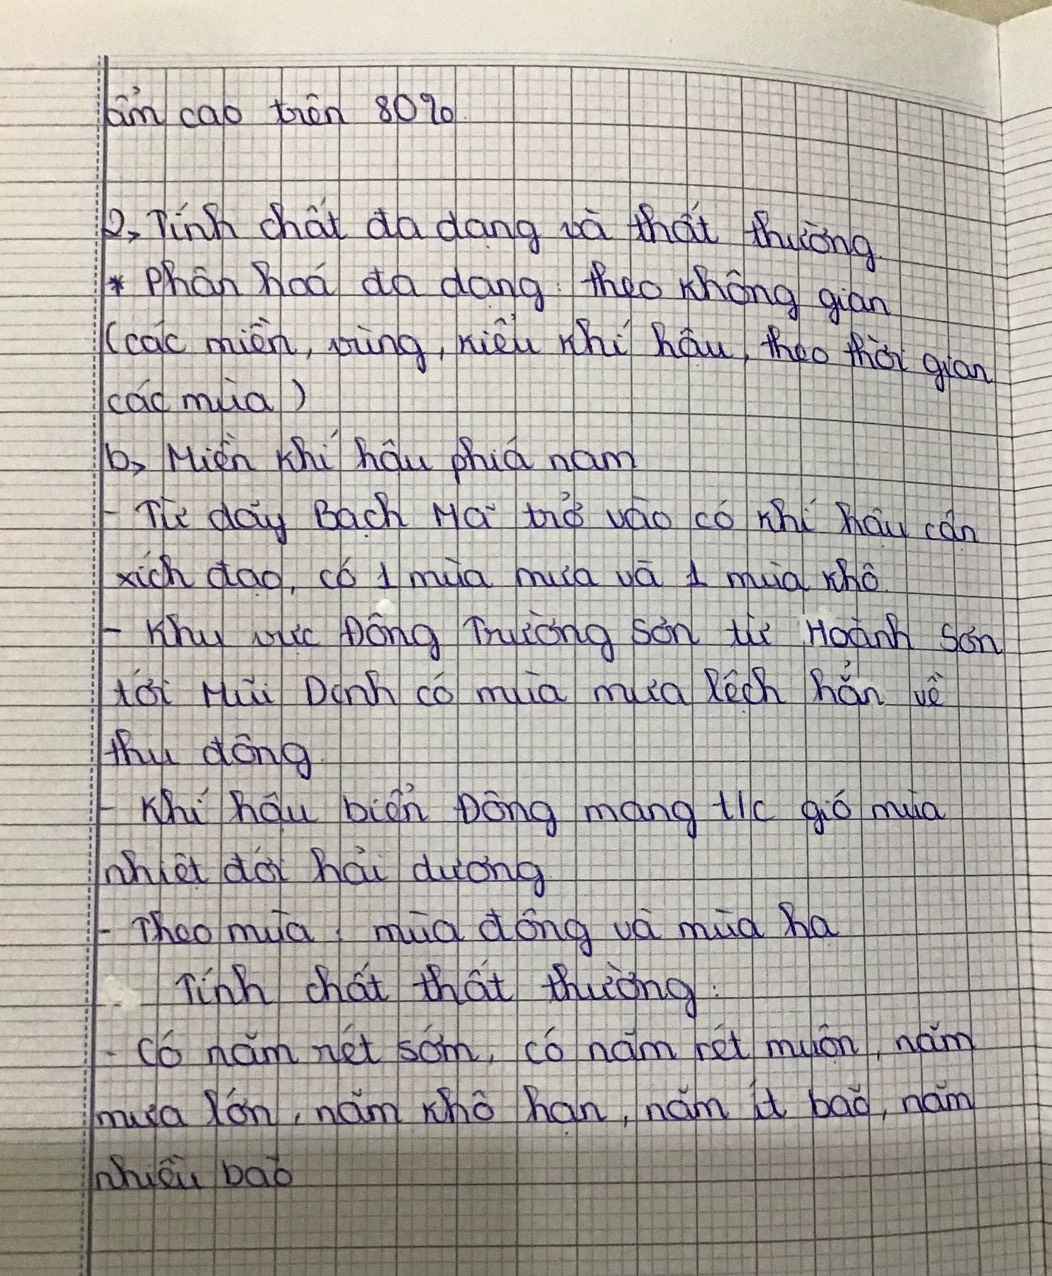 ẩm cao trên 80%.
2, Tính chất đa dạng và thất thường.
* Phân hoá đa dạng: theo không gian
(các miền, vùng, kiểu khí hậu, theo thời gian
các mùa)
b, Miền khí hậu phía nam
- Từ dãy Bạch Mã trở vào có khí hậu cận
xích đạo, có 1 mùa mưa và 1 mùa khô.
- Khu vực Đông Trường Sơn từ Hoành Sơn
tới Mũi Dinh có mùa mưa lệch hẳn về
thu đông.
- Khí hậu biển Đông mang t/c gió mùa
nhiệt đới hải dương.
- Theo mùa: mùa đông và mùa hạ
Tính chất thất thường:
- Có năm rét sớm, có năm rét muộn, năm
mưa lớn, năm khô hạn, năm ít bão, năm
nhiều bão